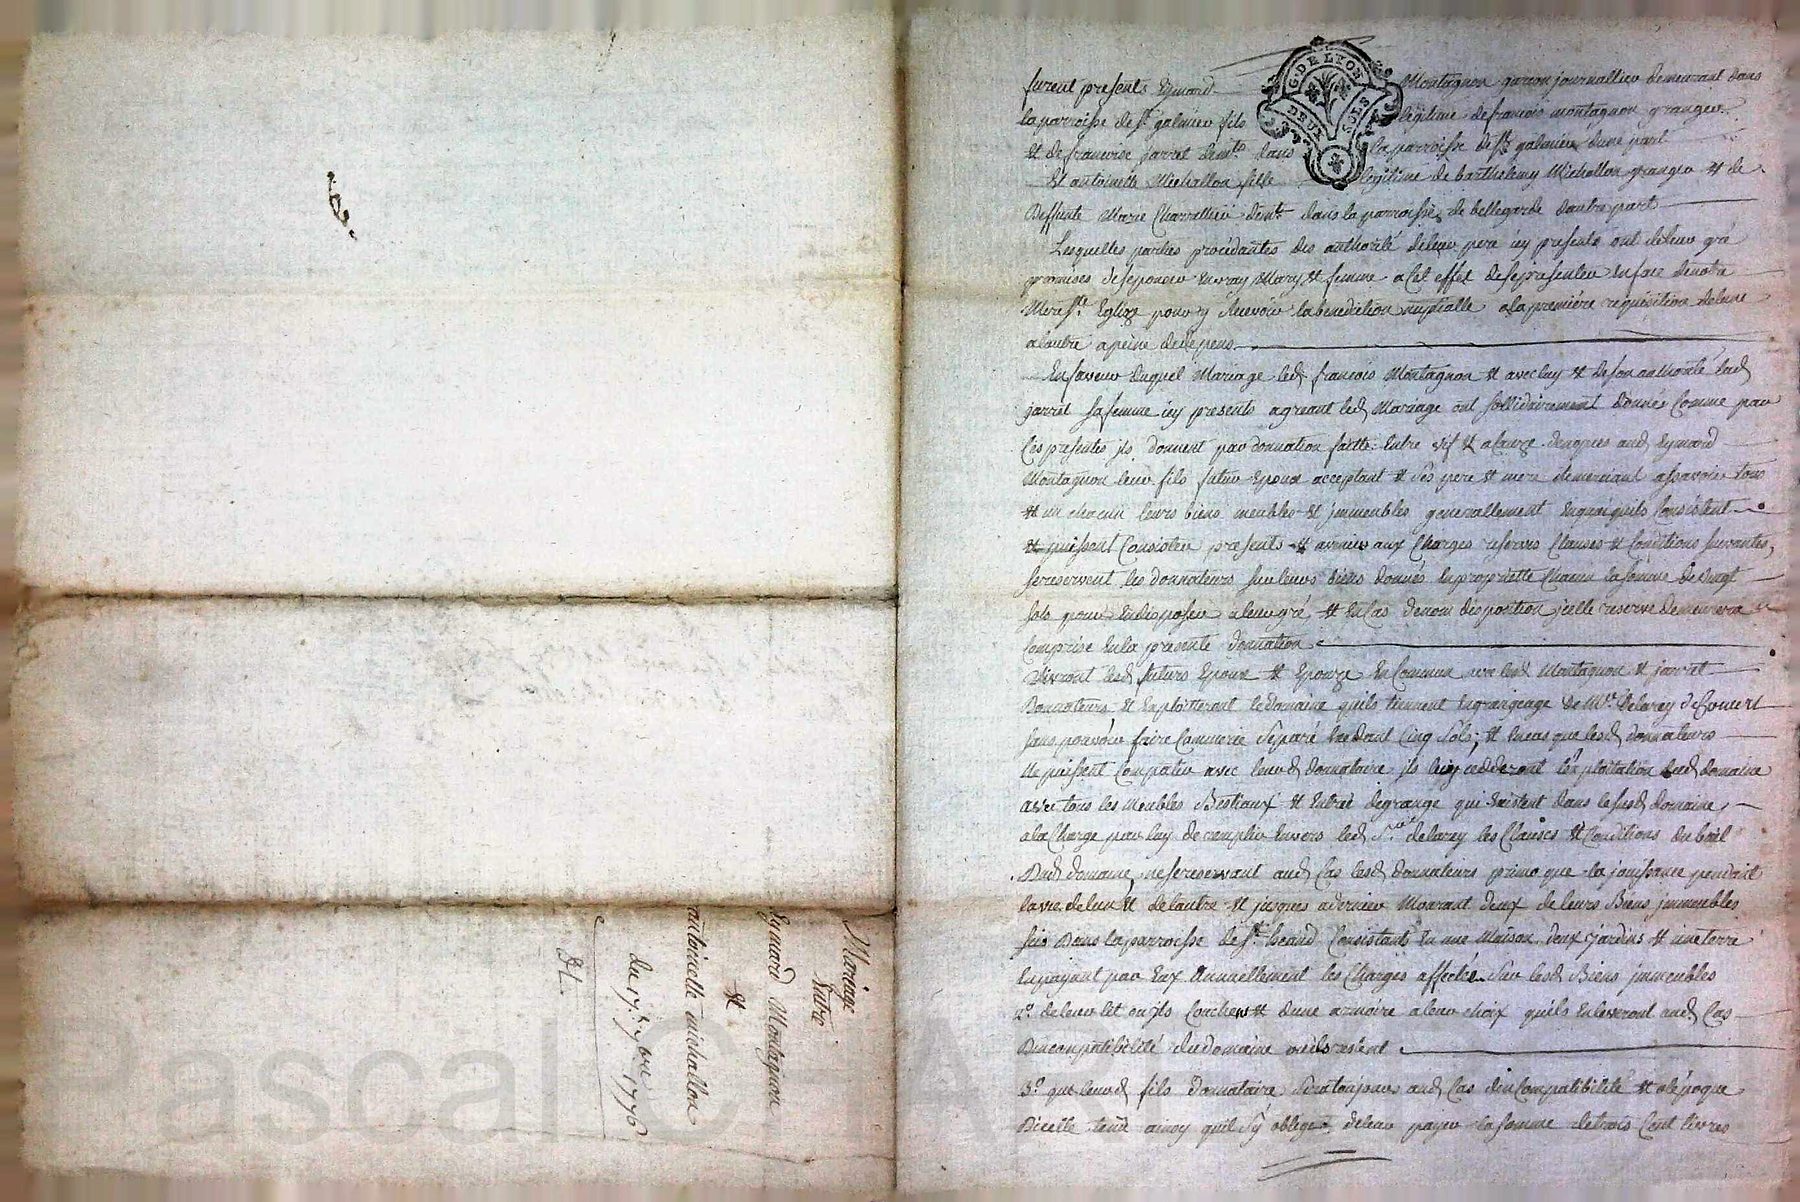 Mariage
Entre
Eymard Montagnon
&
antoinette michallon
du 17e. 7bre 1776
3 L.
G. DE LYON
DEUX SOLS
furent presents Eymard Montagnon garcon journallier demeurant dans
la parroisse de St. galmier fils légitime de francois montagnon granger
& de francoise jarret demts. dans la parroisse de St. galmier dune part
Et antoinette Michallon fille légitime de barthelemy Michallon granger & de
Deffunte Marie Charrettier demt. dans la parroisse de bellegarde dautre part
Lesquelles parties procédantes des authorité deleur pere icy presents ont deleur gré
promises desepouser en vray Mary & femme a cet effet desepresenter en face denotre
Mere Ste. Eglize pour y Recevoir la benediction nuptialle a la premiére requisition delune
a lautre a peine de depens.
En faveur duquel Mariage led. francois Montagnon & avec luy & de son authorité lad.
jarret sa femme icy presents agreant led. Mariage ont sollidairement donnés Comme par
Ces presentes ils donnent par donnation faitte Entre vif & a cause denopces aud. Eymard
Montagnon leur fils futur Epoux acceptant & ses pere & mere remerciant assavoir tous
& un chacun leurs biens meubles & immeubles generallement Enquoiquils Consistent
& puissent Consister presents & avenir aux Charges reserves Clauses & Conditions suivantes,
sereservent les donnateurs sur leurs biens donnés En propriette Chacun la somme de vingt
sols pour En disposer aleur gré, & En Cas denon disposition icelle reserve demeurera
Comprise En la presente donnation
Vivront lesd. futurs Epoux & Epouze En Commun avec lesd. Montagnon & jarret
Donnateurs & Exploitteront le domaine quils tiennent En grangeage de Mr. Delarey
sans pouvoir faire Commerce Séparé Excedant Cinq Sols; & En cas que lesd. donnateurs
Ne puissent Compatir avec leurd. donnataire ils luy cedderont lexploitation dud. domaine
avec tous les Meubles Bestiaux & Entrée degrange qui Existent dans le susd. domaine,
a la Charge par luy de remplir Envers led. Sr. delarey les Clauses & Conditions du bail
Dud. domaine, ne sereservant aud. Cas lesd. donnateurs primo que la jouissance pendant
la vie delun & delautre & jusques a dernier Mourant deux de leurs Biens immeubles
sis Dans la parroisse de St. Consistants En une Maison, deux jardins & une terre
En payant par Eux Annuellement les Charges affectées Sur lesd. Biens immeubles
2o. de leur lit ou ils Couchent & dune armoire a leur choix quils Enleveront aud. Cas
Dincompatibilité du domaine ou ils restent
3o. que leurd. fils donnataire Sera toujours aud. Cas dincompatibilité & a lépoque
Dicelle tenu ainsy quil Sy oblige deleur payer la somme detrois Cent livres